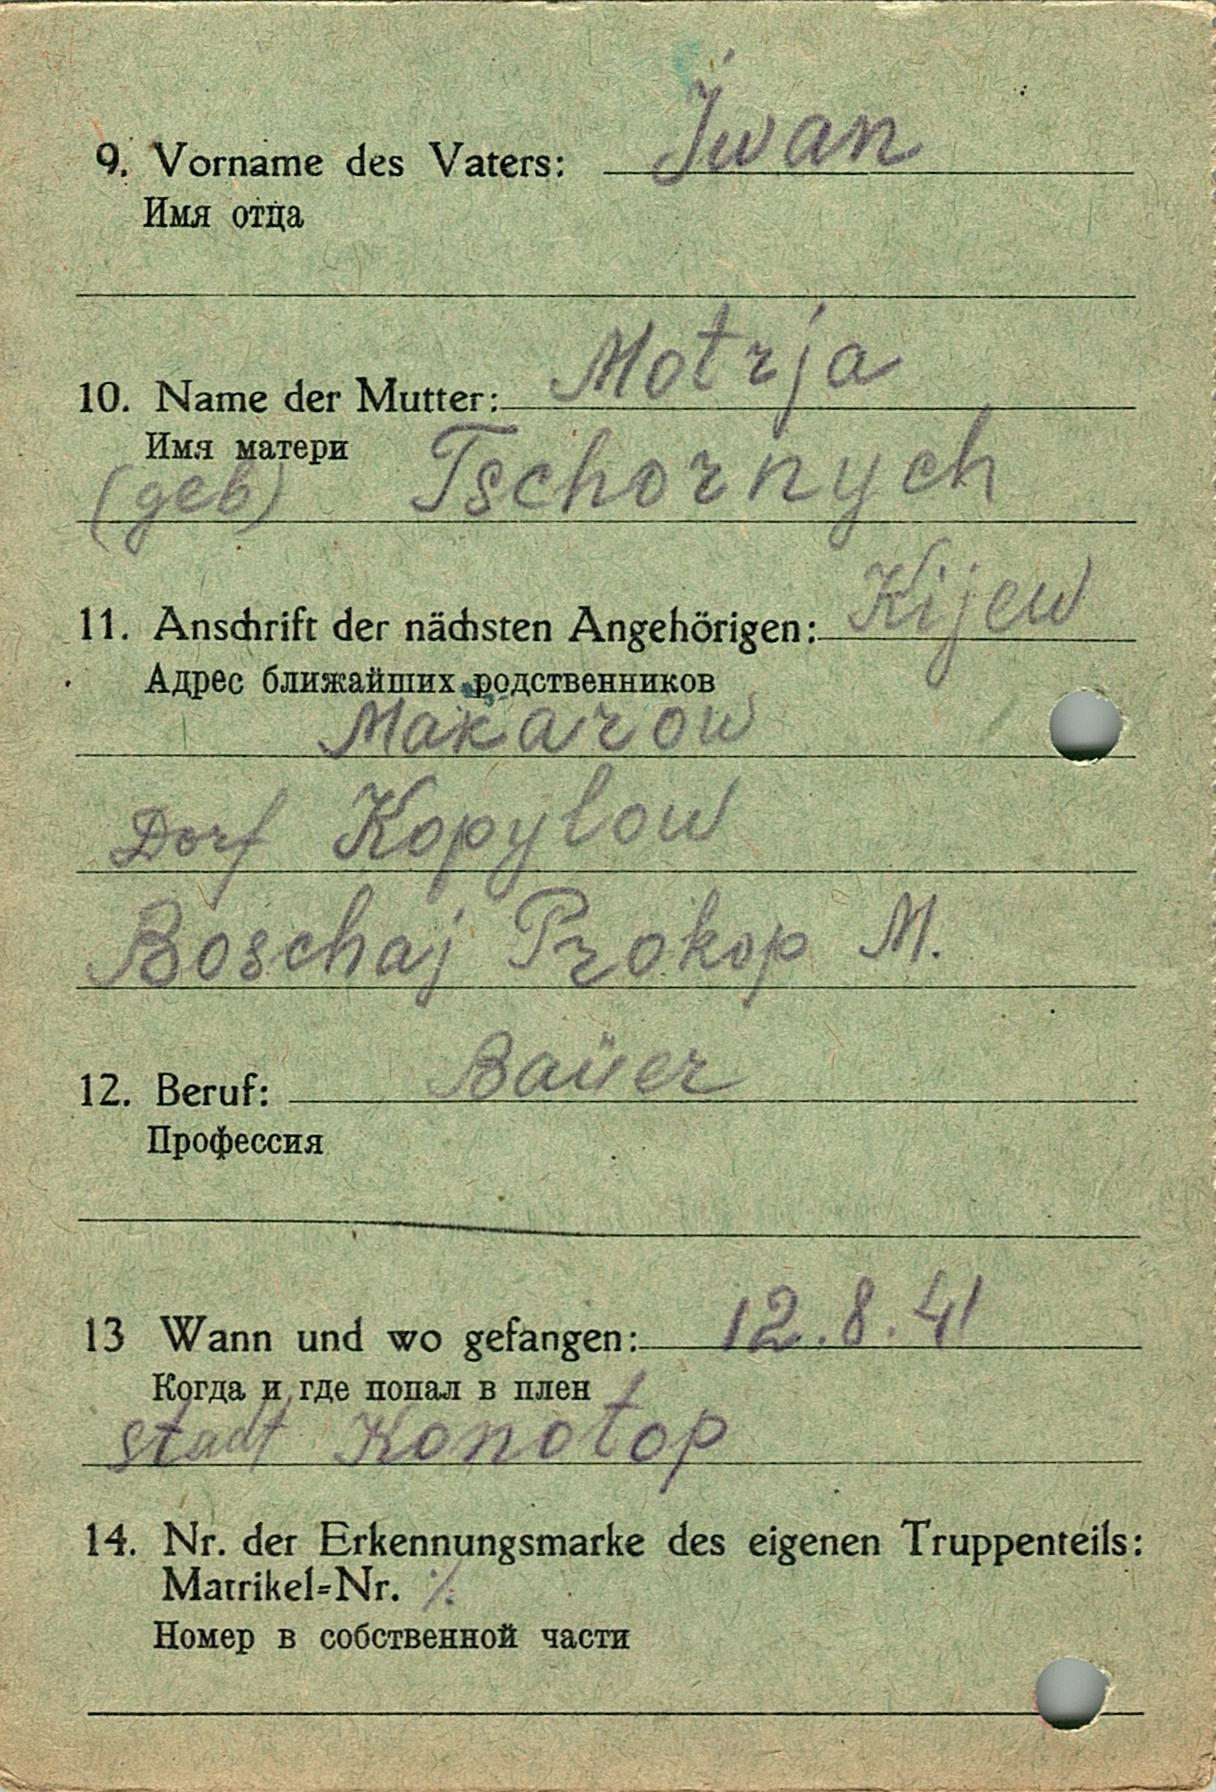 9. Vorname des Vaters: Iwan
Имя отца
10. Name der Mutter: Motrja
Имя матери
(geb) Tschornych
11. Anschrift der nächsten Angehörigen: Kijew
Адрес ближайших родственников
Makarow
Dorf Kopylow
Boschaj Prokop M.
12. Beruf: Baüer
Профессия
13 Wann und wo gefangen: 12.8.41
Когда и где попал в плен
stadt Konotop
14. Nr. der Erkennungsmarke des eigenen Truppenteils:
Matrikel=Nr. ./.
Номер в собственной части